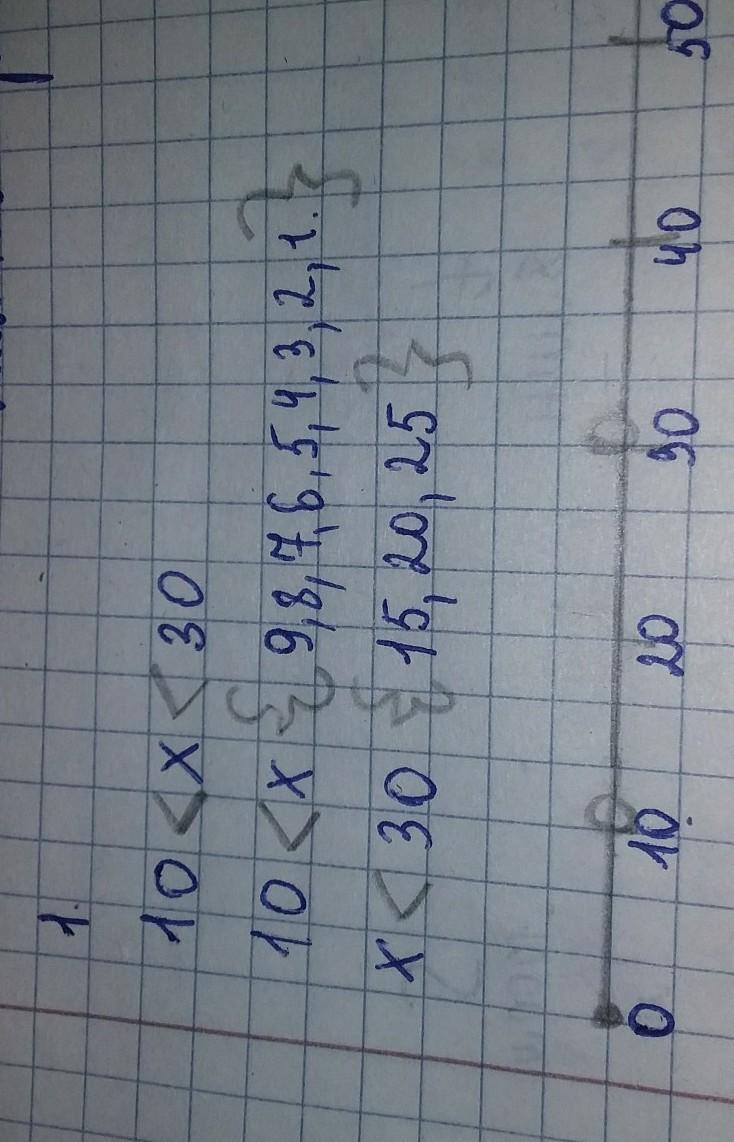 1.
10 < x < 30
10 < x { 9, 8, 7, 6, 5, 4, 3, 2, 1. }
x < 30 { 15, 20, 25 }
0 10 20 30 40 50